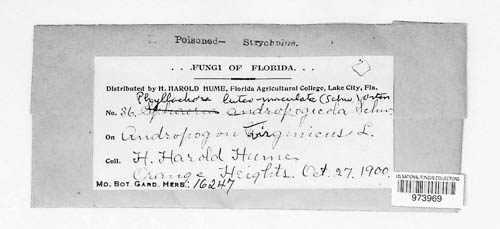 Poisoned— Strychnine.
...FUNGI OF FLORIDA...
Distributed by H. HAROLD HUME, Florida Agricultural College, Lake City, Fla.
Phyllachora luteo-maculata (Schw.) Orton
No. 36. Sphaeria andropogicola Schw.
On Andropogon Virginicus L.
Coll. H. Harold Hume
Orange Heights. Oct. 27, 1900.
MO. BOT. GARD. HERB. 16247
US NATIONAL FUNGUS COLLECTIONS
973969